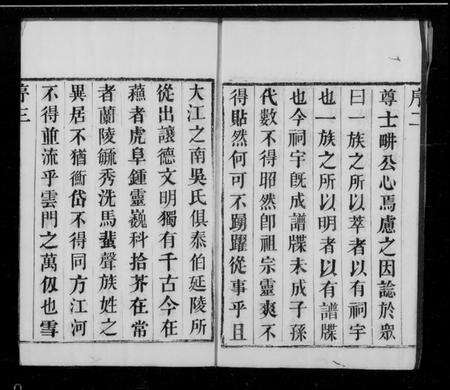 序二
尊士畊公心焉慮之因諗於眾
曰一族之所以萃者以有祠宇
也一族之所以明者以有譜牒
也今祠宇既成譜牒未成子孫
代數不得昭然卽祖宗靈爽不
得貼然何可不踴躍從事乎且
大江之南吳氏俱泰伯延陵所
從出讓德文明獨有千古今在
蘓者虎阜鍾靈巍科拾芥在常
者蘭陵毓秀洗馬蜚聲族姓之
異居不猶衡岱不得同方江河
不得並流乎雲門之萬仭也雪
序三